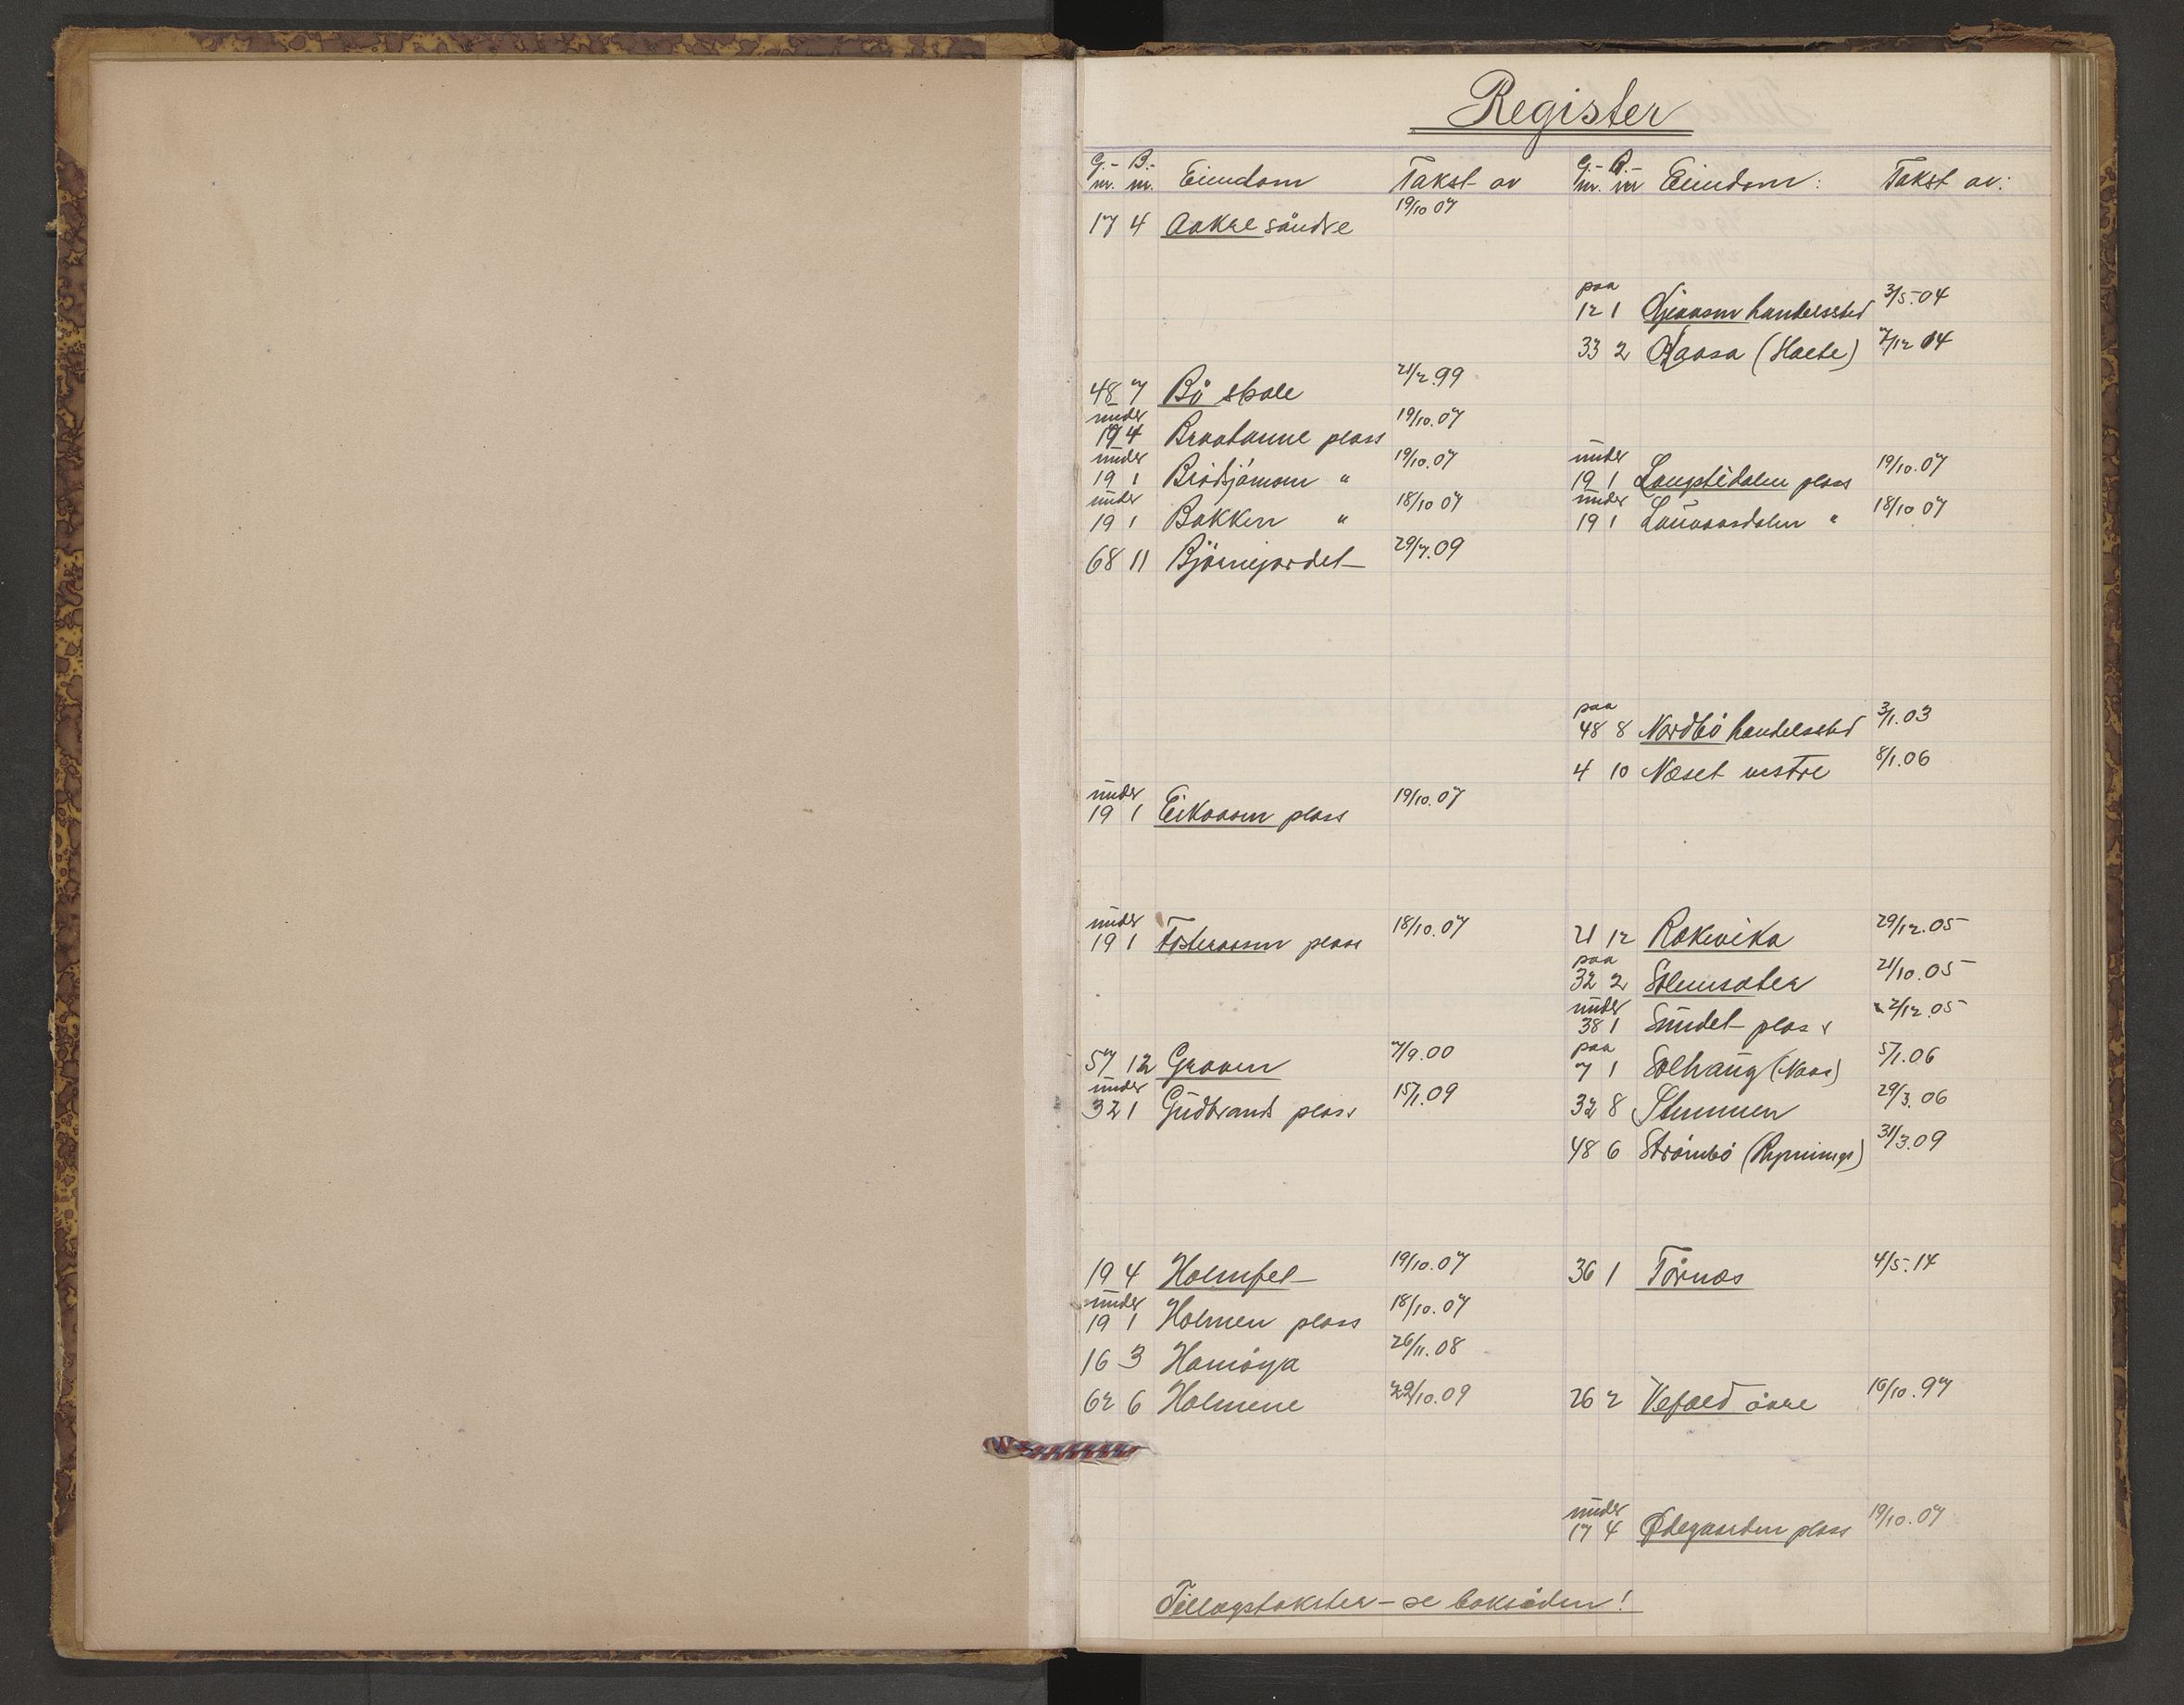 Register
G.- B.-
nr. nr. Eiendom Takst av
17 4 Aakre söndre 19/10 07
48 7 Bö skole 21/2.99
under
19 4 Braatanne plass 19/10.07
under
19 1 " 19/10.07
under
19 1 Bakken " 18/10 07
68 11 Björnejordet 29/7.09
under
19 1 Eikaasen plass 19/10.07
under
19 1 plass 18/10.07
57 12 Graven 7/9.00
under
32 1 Gudbrands plass 15/1.09
19 4 Holmfel 19/10.07
under
19 1 Holmen plass 18/10.07
16 3 Hamöya 26/11.08
62 6 Holmene 29/10.09
G.- B.-
nr. nr Eiendom: Takst av:
paa
12 1 handelssted 3/5.04
33 2 7/12 04
under
19 1 plass 19/10.07
under
19 1 Lauvaasdalen " 18/10 07
paa
48 8 Nordbö handelssted 3/1.03
4 10 Næset vestre 8/1.06
21 12 Rakevika 29/12.05
paa
32 2 21/10.05
under
38 1 Sundet plass 2/12.05
paa
7 1 Solhaug (Naas) 5/1.06
32 8 Stemmen 29/3.06
48 6 Strömbö 31/3.09
36 1 Törnæs 4/5.14
26 2 Vefald övre 16/10.97
under
17 4 Ødegaarden plass 19/10.07
Tillægstakster – se baksiden!